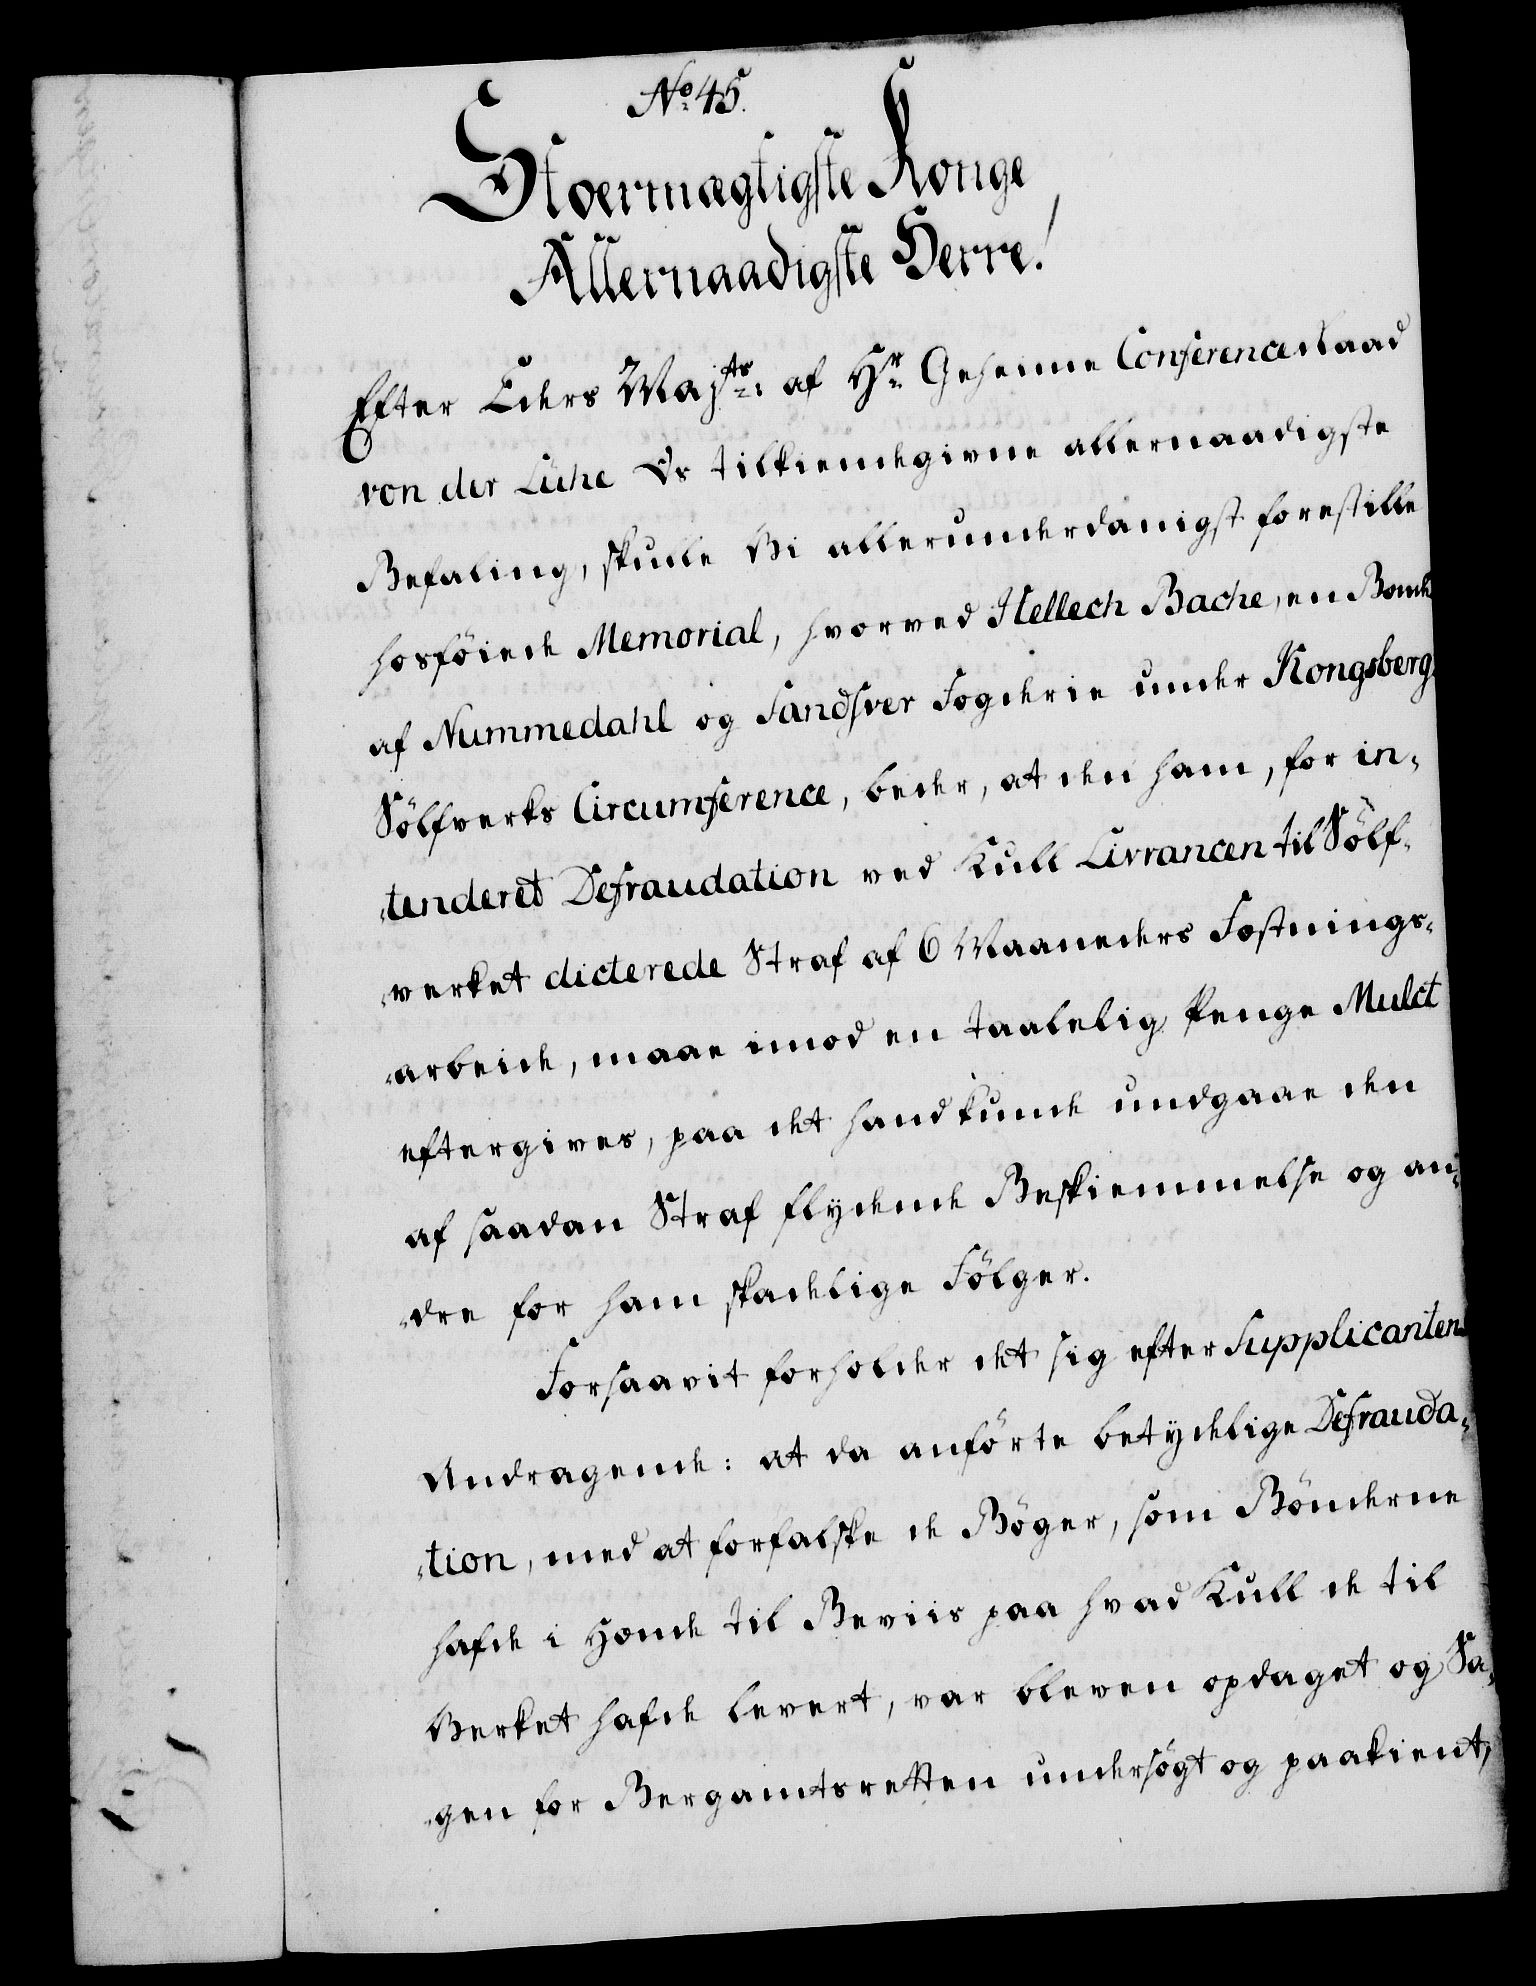 No. 45.
Stoermægtigste Konge
Allernaadigste Herre!
Efter Eders Majts: af Hr. Geheime Conferenceraad
von der Lühe Os tilkiendegivne allernaadigste
Befaling, skulle Vi allerunderdanigst forestille
hosföiede Memorial, hvorved Hellech Bache, en Bonde
af Nummedahl og Sandsver Fogderie under Kongsberg
Sölfverks Circumference, beder, at den ham, for in-
-tenderet Defraudation ved Kull Livrancen til Sölf-
-verket dicterede Straf af 6 Maaneders Festnings-
-arbeide, maae imod en taalelig Penge Mulct
eftergives, paa det hand kunde undgaae den
af saadan Straf flydende Beskiemmelse og an-
-dre for ham skadelige Fölger.
Forsaavit forholder det sig efter Supplicantens
Andragende: at da anförte betydelige Defrauda-
-tion, med at forfalske de Böger, som Bönderne
hafde i Hænde til Beviis paa hvad Kull de til
Verket hafde levert, var bleven opdaget og Sa-
-gen for Bergamtsretten undersögt og paakient,